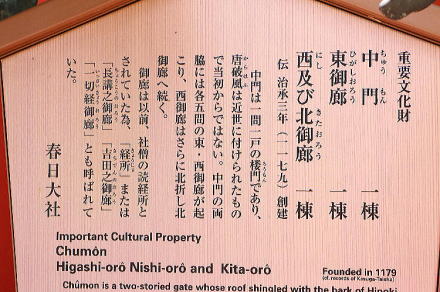 重要文化財
中門 一棟
東御廊 一棟
西及び北御廊 一棟
伝 治承三年(一一七九)創建
中門は一間一戸の楼門であり、
唐破風は近世に付けられたもの
で当初からではない。中門の両
脇には各五間の東・西御廊が起
こり、西御廊はさらに北折し北
御廊へ続く。
御廊は以前、社僧の読経所と
されていた為、「経所」または
「長講之御廊」「吉田之御廊」
「一切経御廊」とも呼ばれて
いた。
春日大社
Important Cultural Property
Chumôn
Higashi-orô Nishi-orô and Kita-orô
Founded in 1179
(cf. records of Kasuga-Taisha)
Chûmon is a two-storied gate whose roof shingled with the bark of Hinoki